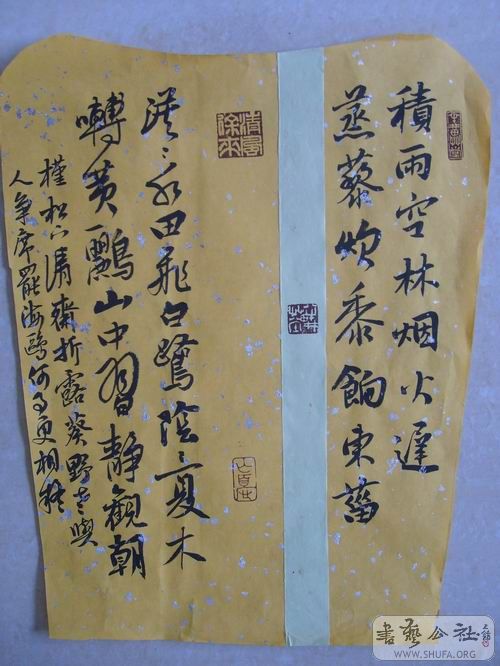 積雨空林烟火遲
蒸藜炊黍餉東菑
漠〻水田飛白鷺陰〻夏木
囀黄鸝山中習靜觀朝
槿松下清齋折露葵野老與
人爭席罷海鷗何事更相疑
清風徐來
書藝公社
WWW.SHUFA.ORG